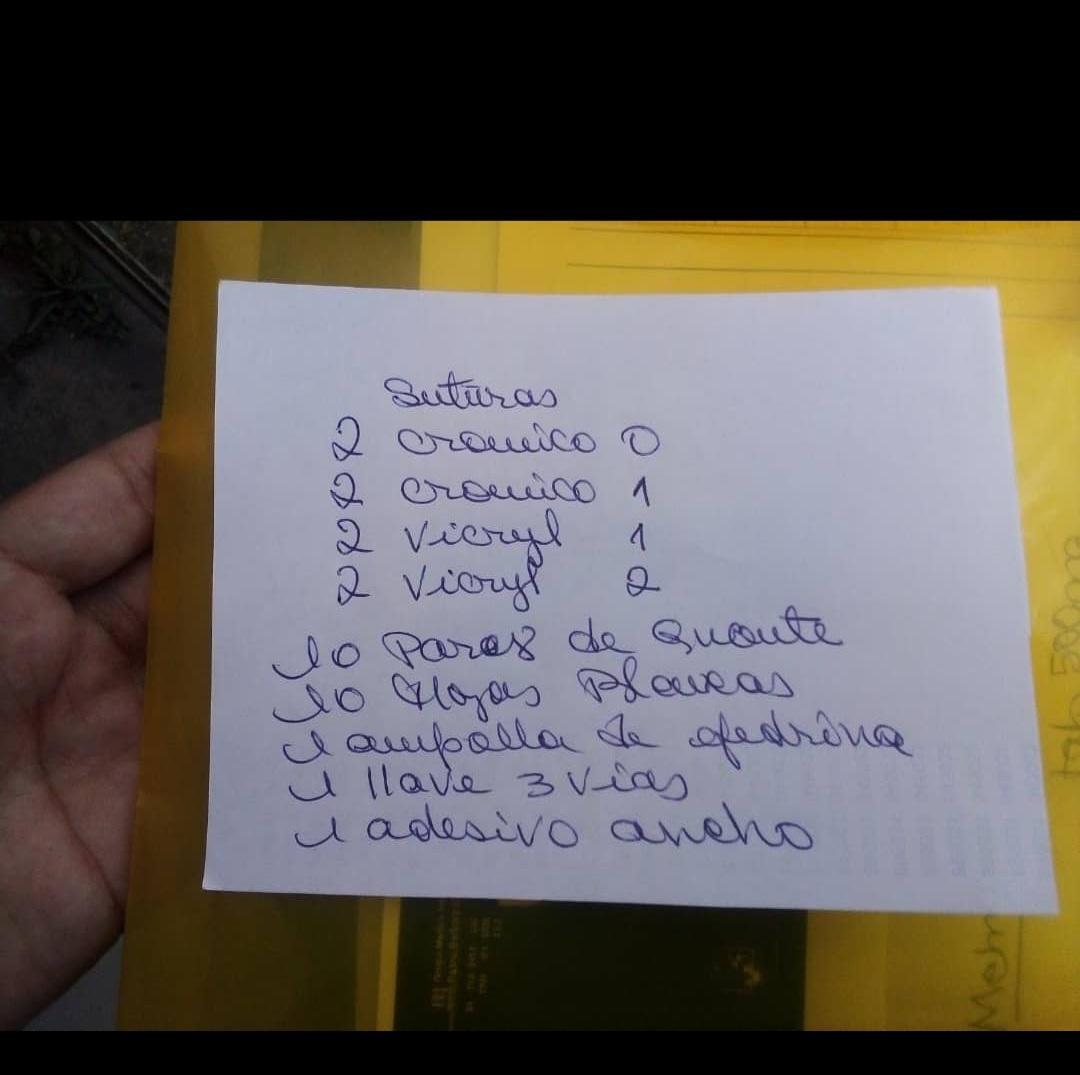 Suturas
2 cromico 0
2 cromico 1
2 Vicryl 1
2 Vicryl 2
10 Pares de Guante
10 Hojas Blancas
1 ampolla de efedrina
1 llave 3 vias
1 adesivo ancho